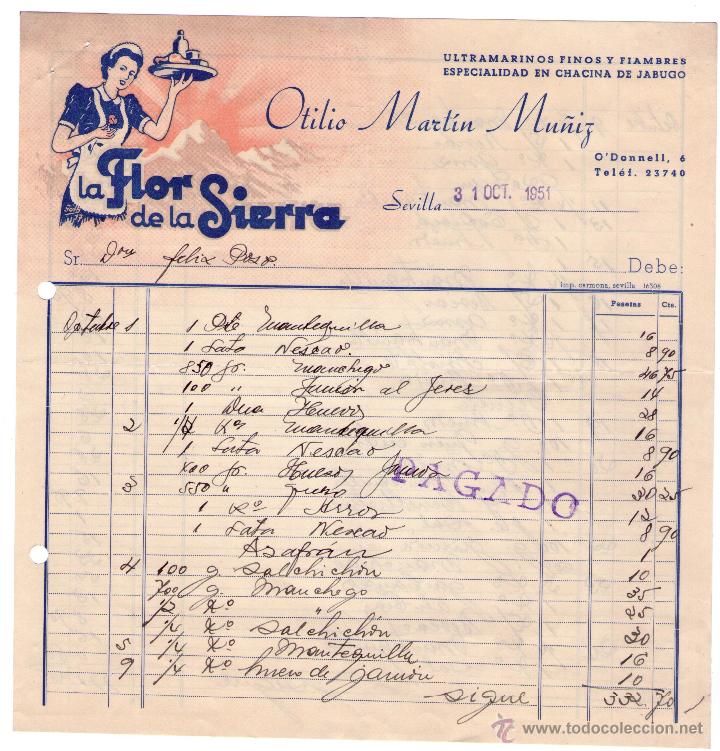 ULTRAMARINOS FINOS Y FIAMBRES
ESPECIALIDAD EN CHACINA DE JABUGO
Otilio Martín Muñiz
O'Donnell, 6
Teléf. 23740
La Flor
de la Sierra
Sevilla 31 OCT. 1951
Sr. Felix Debe:
imp. carmona, sevilla 16308
Pesetas Cts.
Octubre 1 1 Pte Mantequilla 16
1 Lata Nescao. 8 90
850 gr. Manchego 46 75
100 " Jamón al Jerez 14
1 Dna Huevos 28
2 1/4 Kº Mantequilla 16
1 Lata Nescao 8 90
400 gr Hueso Jamón 16
3 550 " 30 25
1 Kº Arroz 12
1 Lata Nescao 8 90
Azafran 1
PAGADO
4 100 g Salchichón 10
700 g Manchego 35
1/2 Kº " 25
1/4 Kº Salchichón 30
5 1/4 Kº Mantequilla 16
9 1/4 Kº hueso de jamón 10
Sigue 332 70
todocoleccion
www.todocoleccion.net